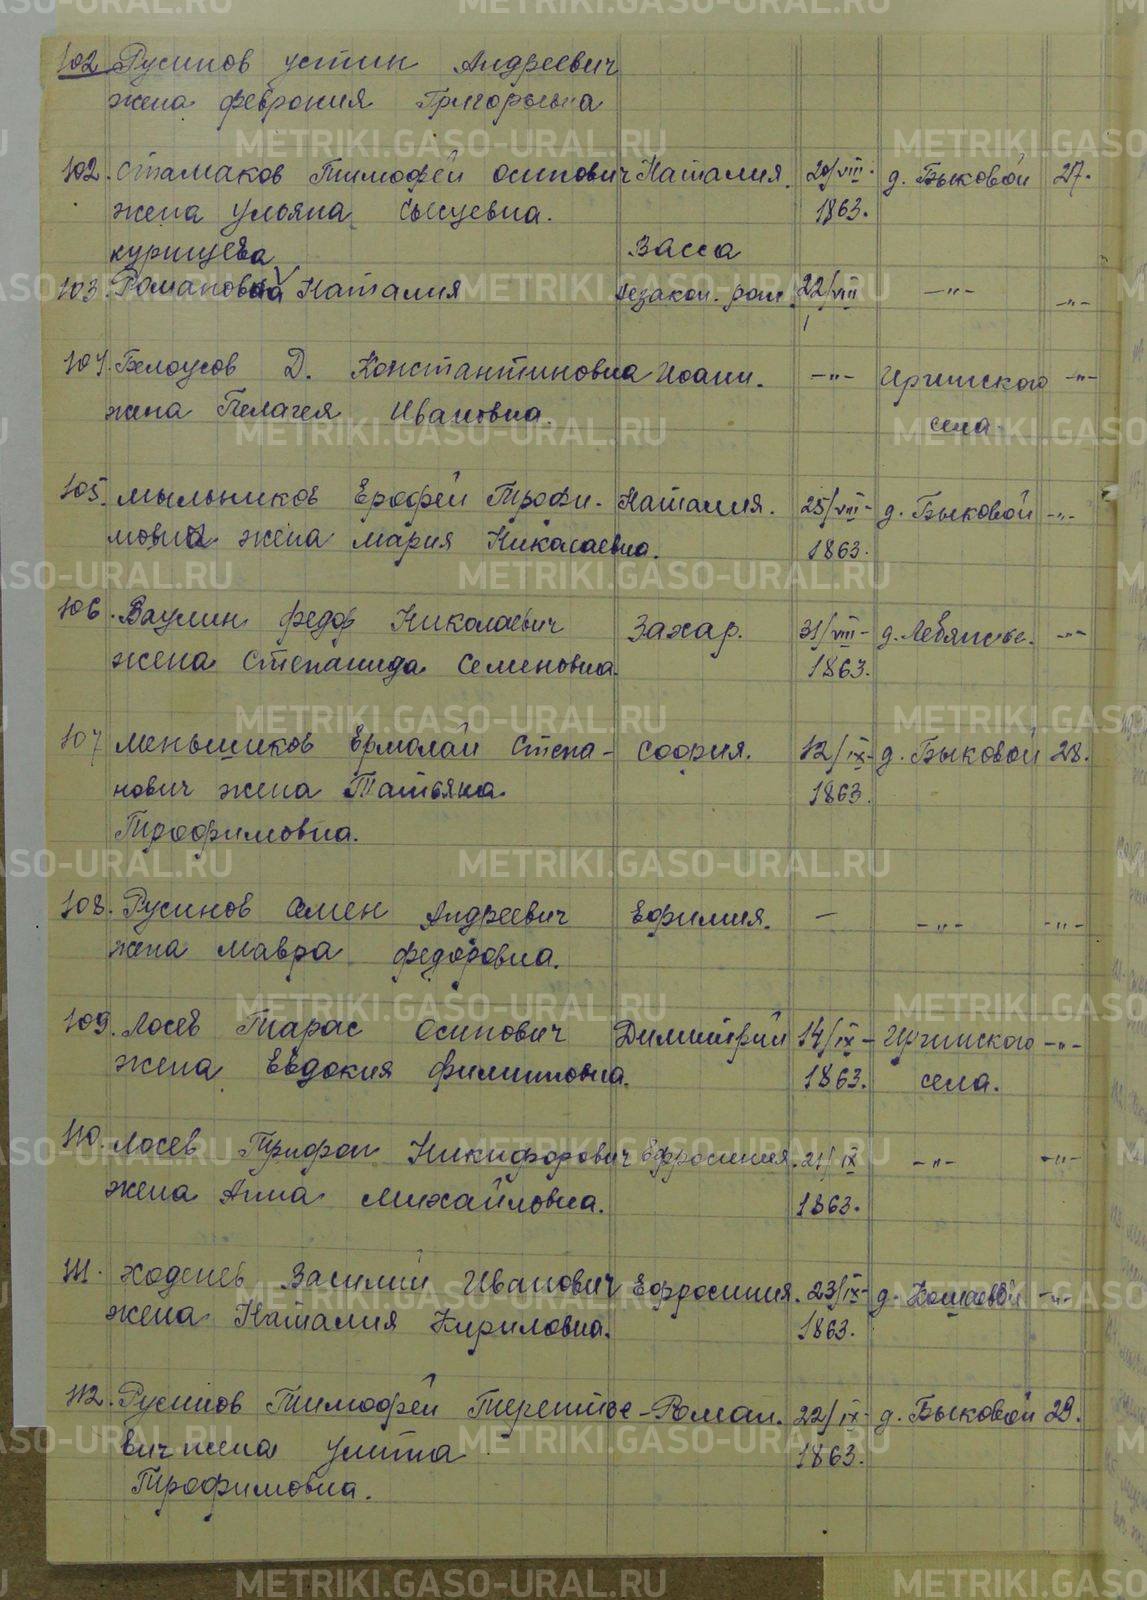 102 Русинов Устин Андреевич
жена Феврония Григорьевна
102. Стамаков Тимофей Осипович Наталия. 20/VIII- д. Быковой 27.
жена Ульяна Сысуевна. 1863.
курищева Васса
103. Романовна Наталия незакон. рож. 22/VIII -"- -"-
104. Белоусов Д. Константиновна Иоанн. -"- Иргинского -"-
жена Пелагея Ивановна. села.
105. Мыльников Ерофей Трофи- Наталия. 25/VIII- д. Быковой -"-
мовна жена Мария Никасаевна. 1863.
106. Ваулин Федор Николаевич Захар. 31/VIII- д. Лебяжье. -"-
жена Степанида Семеновна. 1863.
107 Меньшиков Ермолай Степа- София. 12/IX- д. Быковой 28.
нович жена Татьяна 1863.
Трофимовна.
108. Русинов Семен Андреевич Ефимия. — -"- -"-
жена Мавра Федоровна.
109. Лосев Тарас Осипович Димитрий 14/IX- Иргинского -"-
жена Евдокия Филипповна. 1863. села.
110. Лосев Трифон Никифорович Ефросиния. 21/IX -"- -"-
жена Анна Михайловна. 1863.
111. Ходенев Василий Иванович Ефросиния. 23/IX- д. Кошаевой -"-
жена Наталия Кириловна. 1863.
112. Русинов Тимофей Терентье- Роман. 22/IX- д. Быковой 29.
вич жена Улита 1863.
Трофимовна.
METRIKI.GASO-URAL.RU